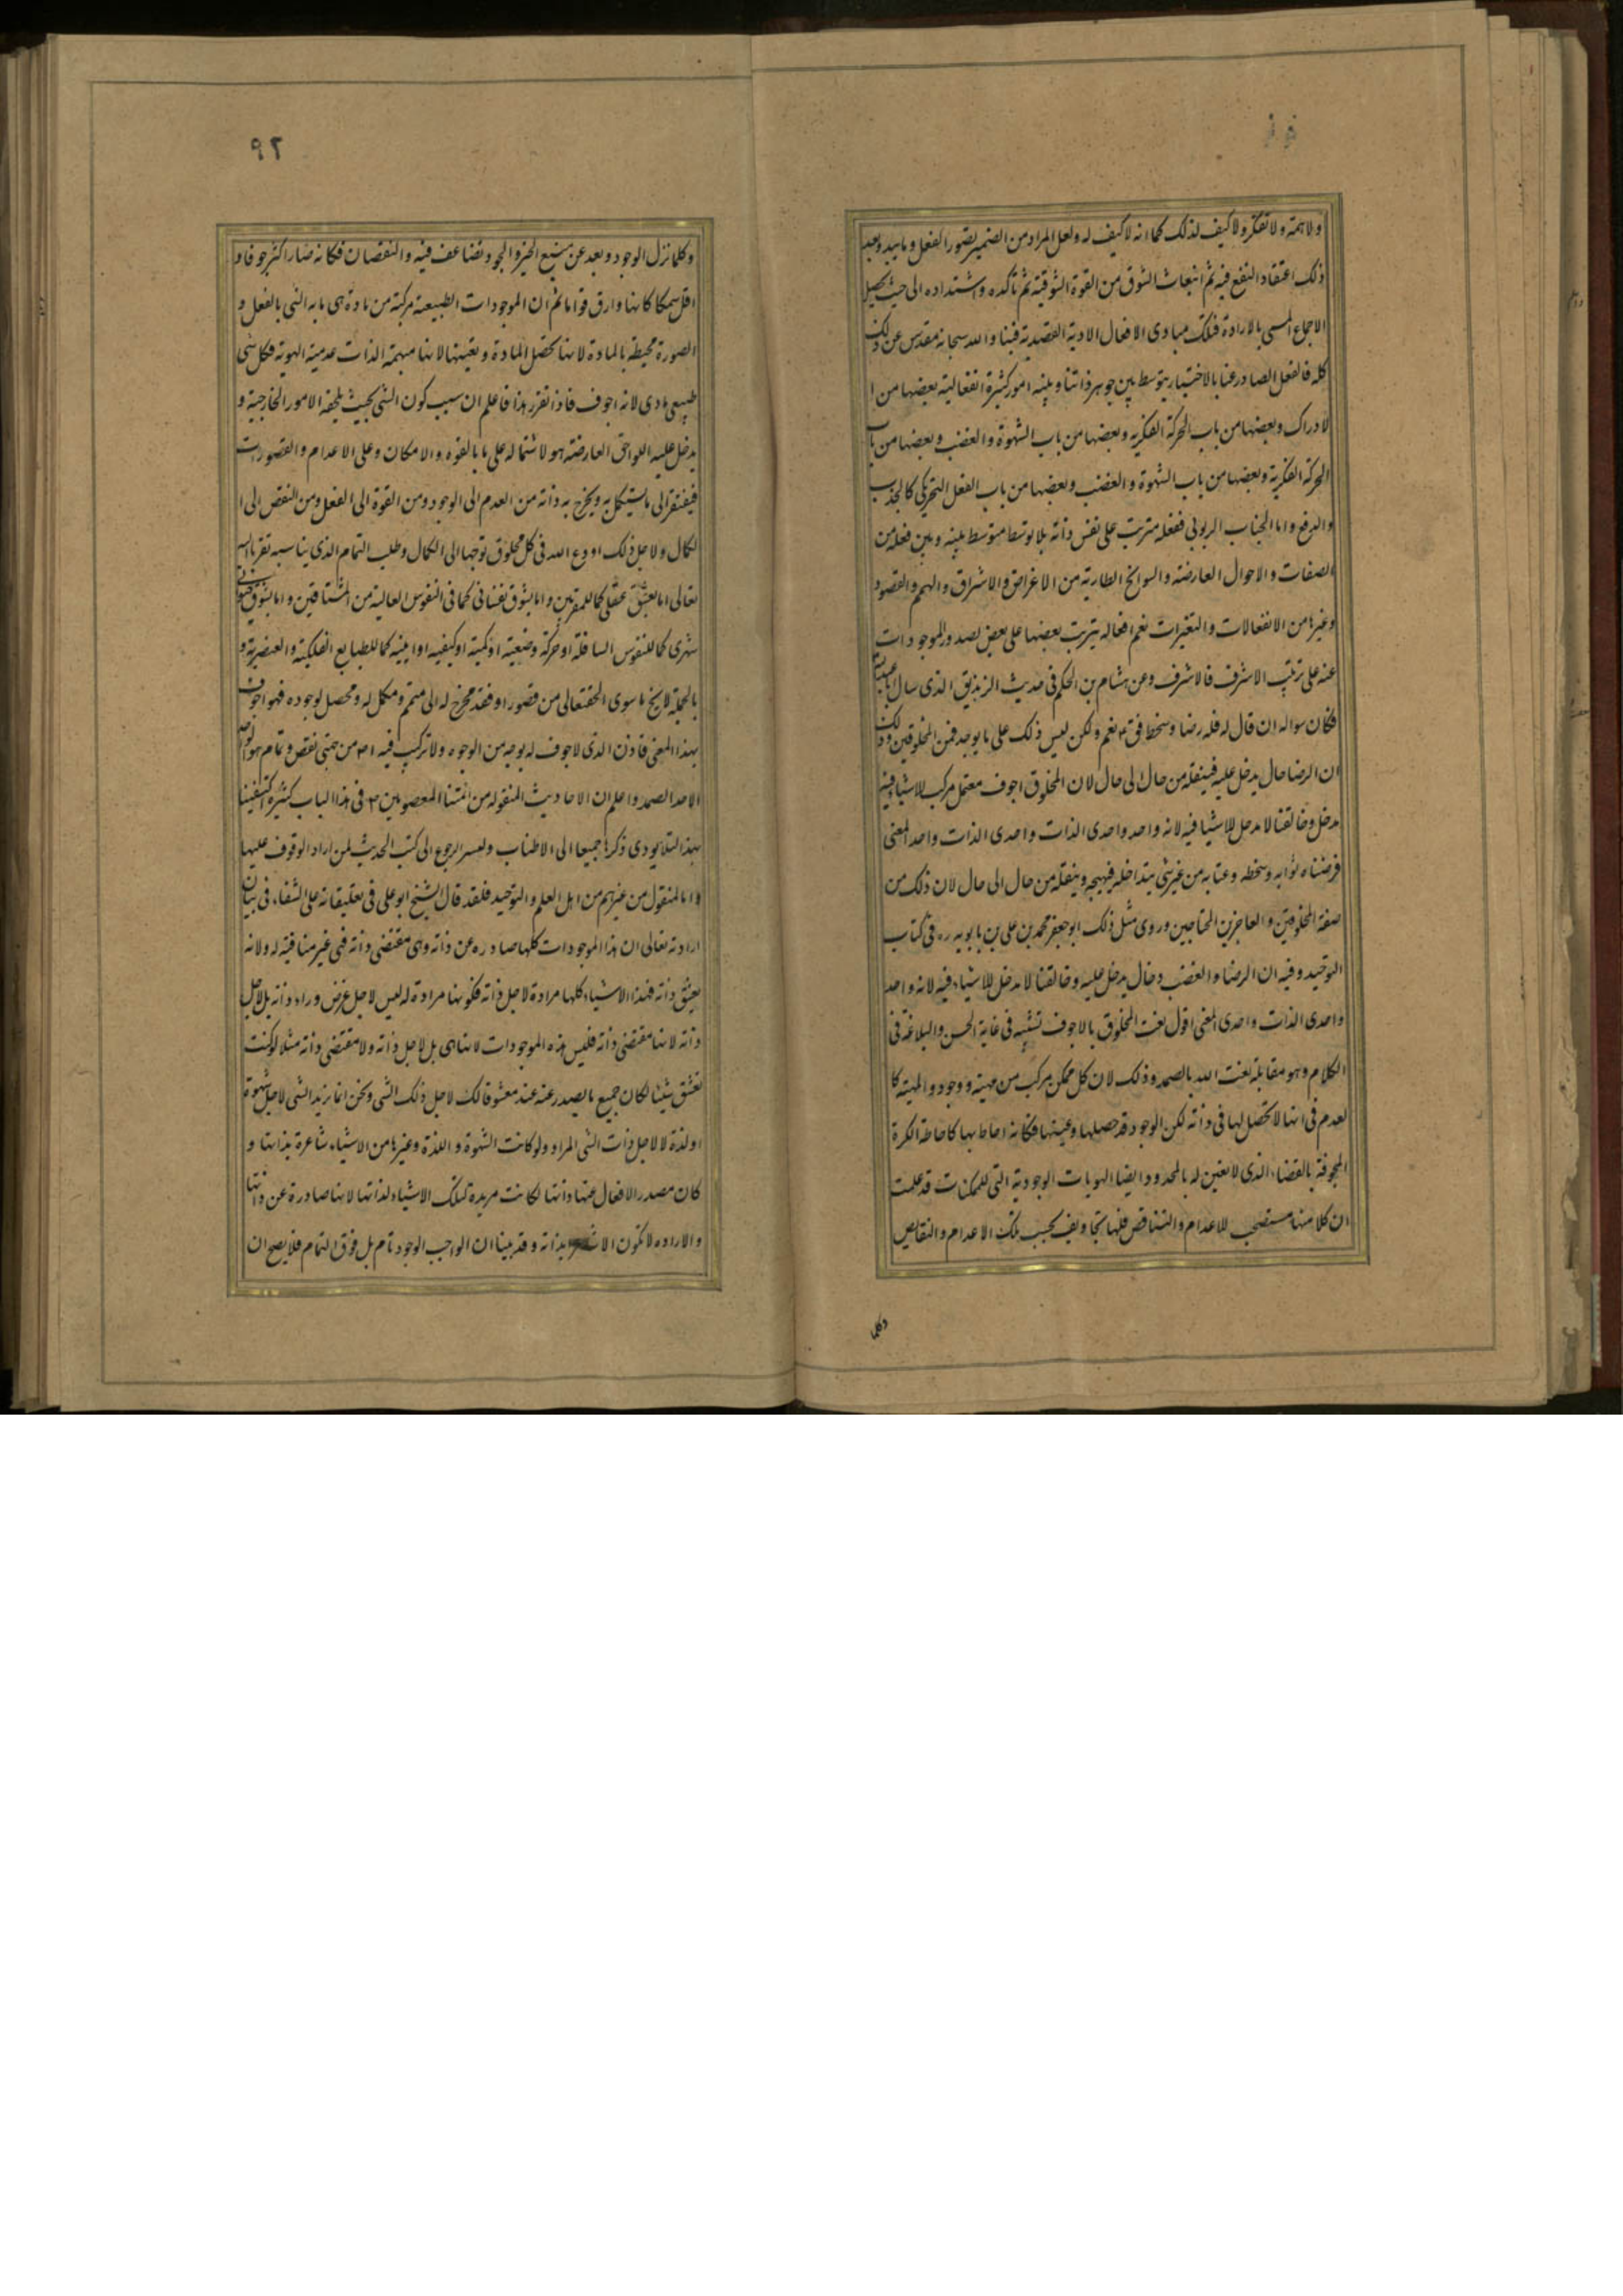 ولا همة ولا تفكر ولا كيف لذلك كما انه لا كيف له ولعل المراد من الضمير تصور الفعل وما يبدو بعد
ذلك اعتقاد النفع فيه ثم انبعاث الشوق من القوة الشوقية ثم تأكده واشتداده الى حيث يحصل
الاجماع المسمى بالارادة فتلك مبادى الافعال الارادية القصدية فينا والله سبحانه مقدس عن ذلك
كله فالفعل الصادر عنا بالاختيار يتوسط بين جوهر ذاتنا وبينه امور كثيرة انفعالية بعضها من ا
لادراك وبعضها من باب الحركة الفكرية وبعضها من باب الشهوة والغضب وبعضها من باب
الحركة الفكرية وبعضها من باب الشهوة والغضب وبعضها من باب الفعل التحريكى كالجذب
والدفع واما الجناب الربوبى ففعله مترتب على نفس ذاته بلا توسط متوسط بينه وبين فعله من
الصفات والاحوال العارضة والسوانح الطارية من الاغراض والاشراق والهمم والقصود
وغيرها من الانفعالات والتغيرات نعم افعاله يترتب بعضها على بعض لصدور الموجودات
عنه على ترتيب الاشرف فالاشرف وعن هشام بن الحكم فى حديث الزنديق الذى سال ابا عبدالله
فكان سواله ان قال له فله رضا وسخط فق ع نعم ولكن ليس ذلك على ما يوجد فى المخلوقين وذلك
ان الرضا حال يدخل عليه فينقله من حال الى حال لان المخلوق اجوف معتمل مركب للاشياء فيه
مدخل وخالقنا لا مدخل للاشيا فيه لانه واحد واحدى الذات واحدى الذات واحد المعنى
فرضناه ثوابه وسخطه وعتابه من غير شى يتداخله فيهيجه وينقله من حال الى حال لان ذلك من
صفة المخلوقين والعاجزين المحتاجين وروى مثل ذلك ابو جعفر محمد بن على بن بابويه ره فى كتاب
التوحيد وفيه ان الرضا والغضب دخال يدخل عليه وخالقنا لا مدخل للاشياء فيه لانه واحد
واحدى الذات واحدى المعنى اقول نعت المخلوق بالاجوف تشبيه فى غاية الحسن والبلاغة فى
الكلام وهو مقابلة نعت الله بالصمد وذلك لان كل ممكن مركب من مهية ووجود والمهية كا
لعدم فى انها لا تحصل لها فى ذاته لكن الوجود قد حصلها وعينها فكانه احاط بها كاحاطة الكرة
المجوفة بالفضاء الذى لا تعين له بالمحدود وايضا الهويات الوجودية التى للممكنات قد علمت
ان كلا منها مستصحب للاعدام والتناقص فلها تجاويف بحسب تلك الاعدام والنقايص
وكلما
٩٢
وكلما نزل الوجود وبعد عن منبع الخير والجود تضاعف فيه والنقصان فكانه صار اكثر جوفا و
اقل سمكا كانها وارق قواما ثم ان الموجودات الطبيعة مركبة من مادة هى ما به الشى بالفعل و
الصورة محيطة بالمادة لانها تحصل المادة وتعينها لانها مبهمة الذات عدمية الهوية فكل شى
طبيعى مادى لانه اجوف فاذا تقرر هذا فاعلم ان سبب كون الشى بحيث يلحقه الامور الخارجية و
يدخل عليه اللواحق العارضة هو لاشتماله على ما بالقوه والامكان وعلى الاعدام والقصورات
فيفتقر الى ما يستكمل به ويخرج به ذاته من العدم الى الوجود ومن القوة الى الفعل ومن النقص الى ا
لكمال ولاجل ذلك اودع الله فى كل مخلوق توجها الى الكمال وطلب التمام الذى يناسبه تقربا اليه
تعالى اما بعشق عقلى كما للمقربين واما بشوق نفسانى كما فى النفوس العالية من المشتاقين واما بشوق حيوانى
شهوى كما للنفوس السافلة او حركة وضعية او كمية او كيفية او اينية كما للطبايع الفلكية والعنصرية و
بالجملة لا يخ ما سوى الحقتعالى من قصور او فقد مخرج له الى متمم ومكمل له ومحصل لوجوده فهو اجوف
بهذا المعنى فاذن الذى لاجوف له بوجه من الوجوه ولا تركيب فيه اص من جهتى نقص وتمام هو الواحد
الاحد الصمد واعلم ان الاحاديث المنقولة من ائمتنا المعصومين ع فى هذا الباب كثيرة اكتفينا
بهذا لئلا يودى ذكرها جميعا الى الاطناب وليسر الرجوع الى كتب الحديث لمن اراد الوقوف عليها
واما المنقول من غيرهم من اهل العلم والتوحيد فلقد قال الشيخ ابو على فى تعليقاته على الشفاء فى بيان
ارادته تعالى ان هذا الموجودات كلها صادره عن ذاته وهى مقتضى ذاته فهى غير منافية له ولانه
يعشق ذاته فهذا الاشياء كلها مرادة لاجل ذاته فكونها مرادة له ليس لاجل غرض وراء ذاته بل لاجل
ذاته لانها مقتضى ذاته فليس هذه الموجودات لانها هى بل لاجل ذاته ولا مقتضى ذاته مثلا لو كنت
تعشق شيئا لكان جميع ما يصدر عنه عند معشوقا لك لاجل ذلك الشى ونحن انما نريد الشى لاجل شهوة
او لذة لا لاجل ذات الشى المراد ولو كانت الشهوة واللذة وغيرها من الاشياء شاعرة بذاتها و
كان مصدر الافعال عنها ذاتها لكانت مريدة لتلك الاشياء لذاتها لانها صادرة عن ذاتها
والاراده لا تكون الا بذاته وقد بينا ان الواجب الوجود تام بل فوق التمام فلا يصح ان